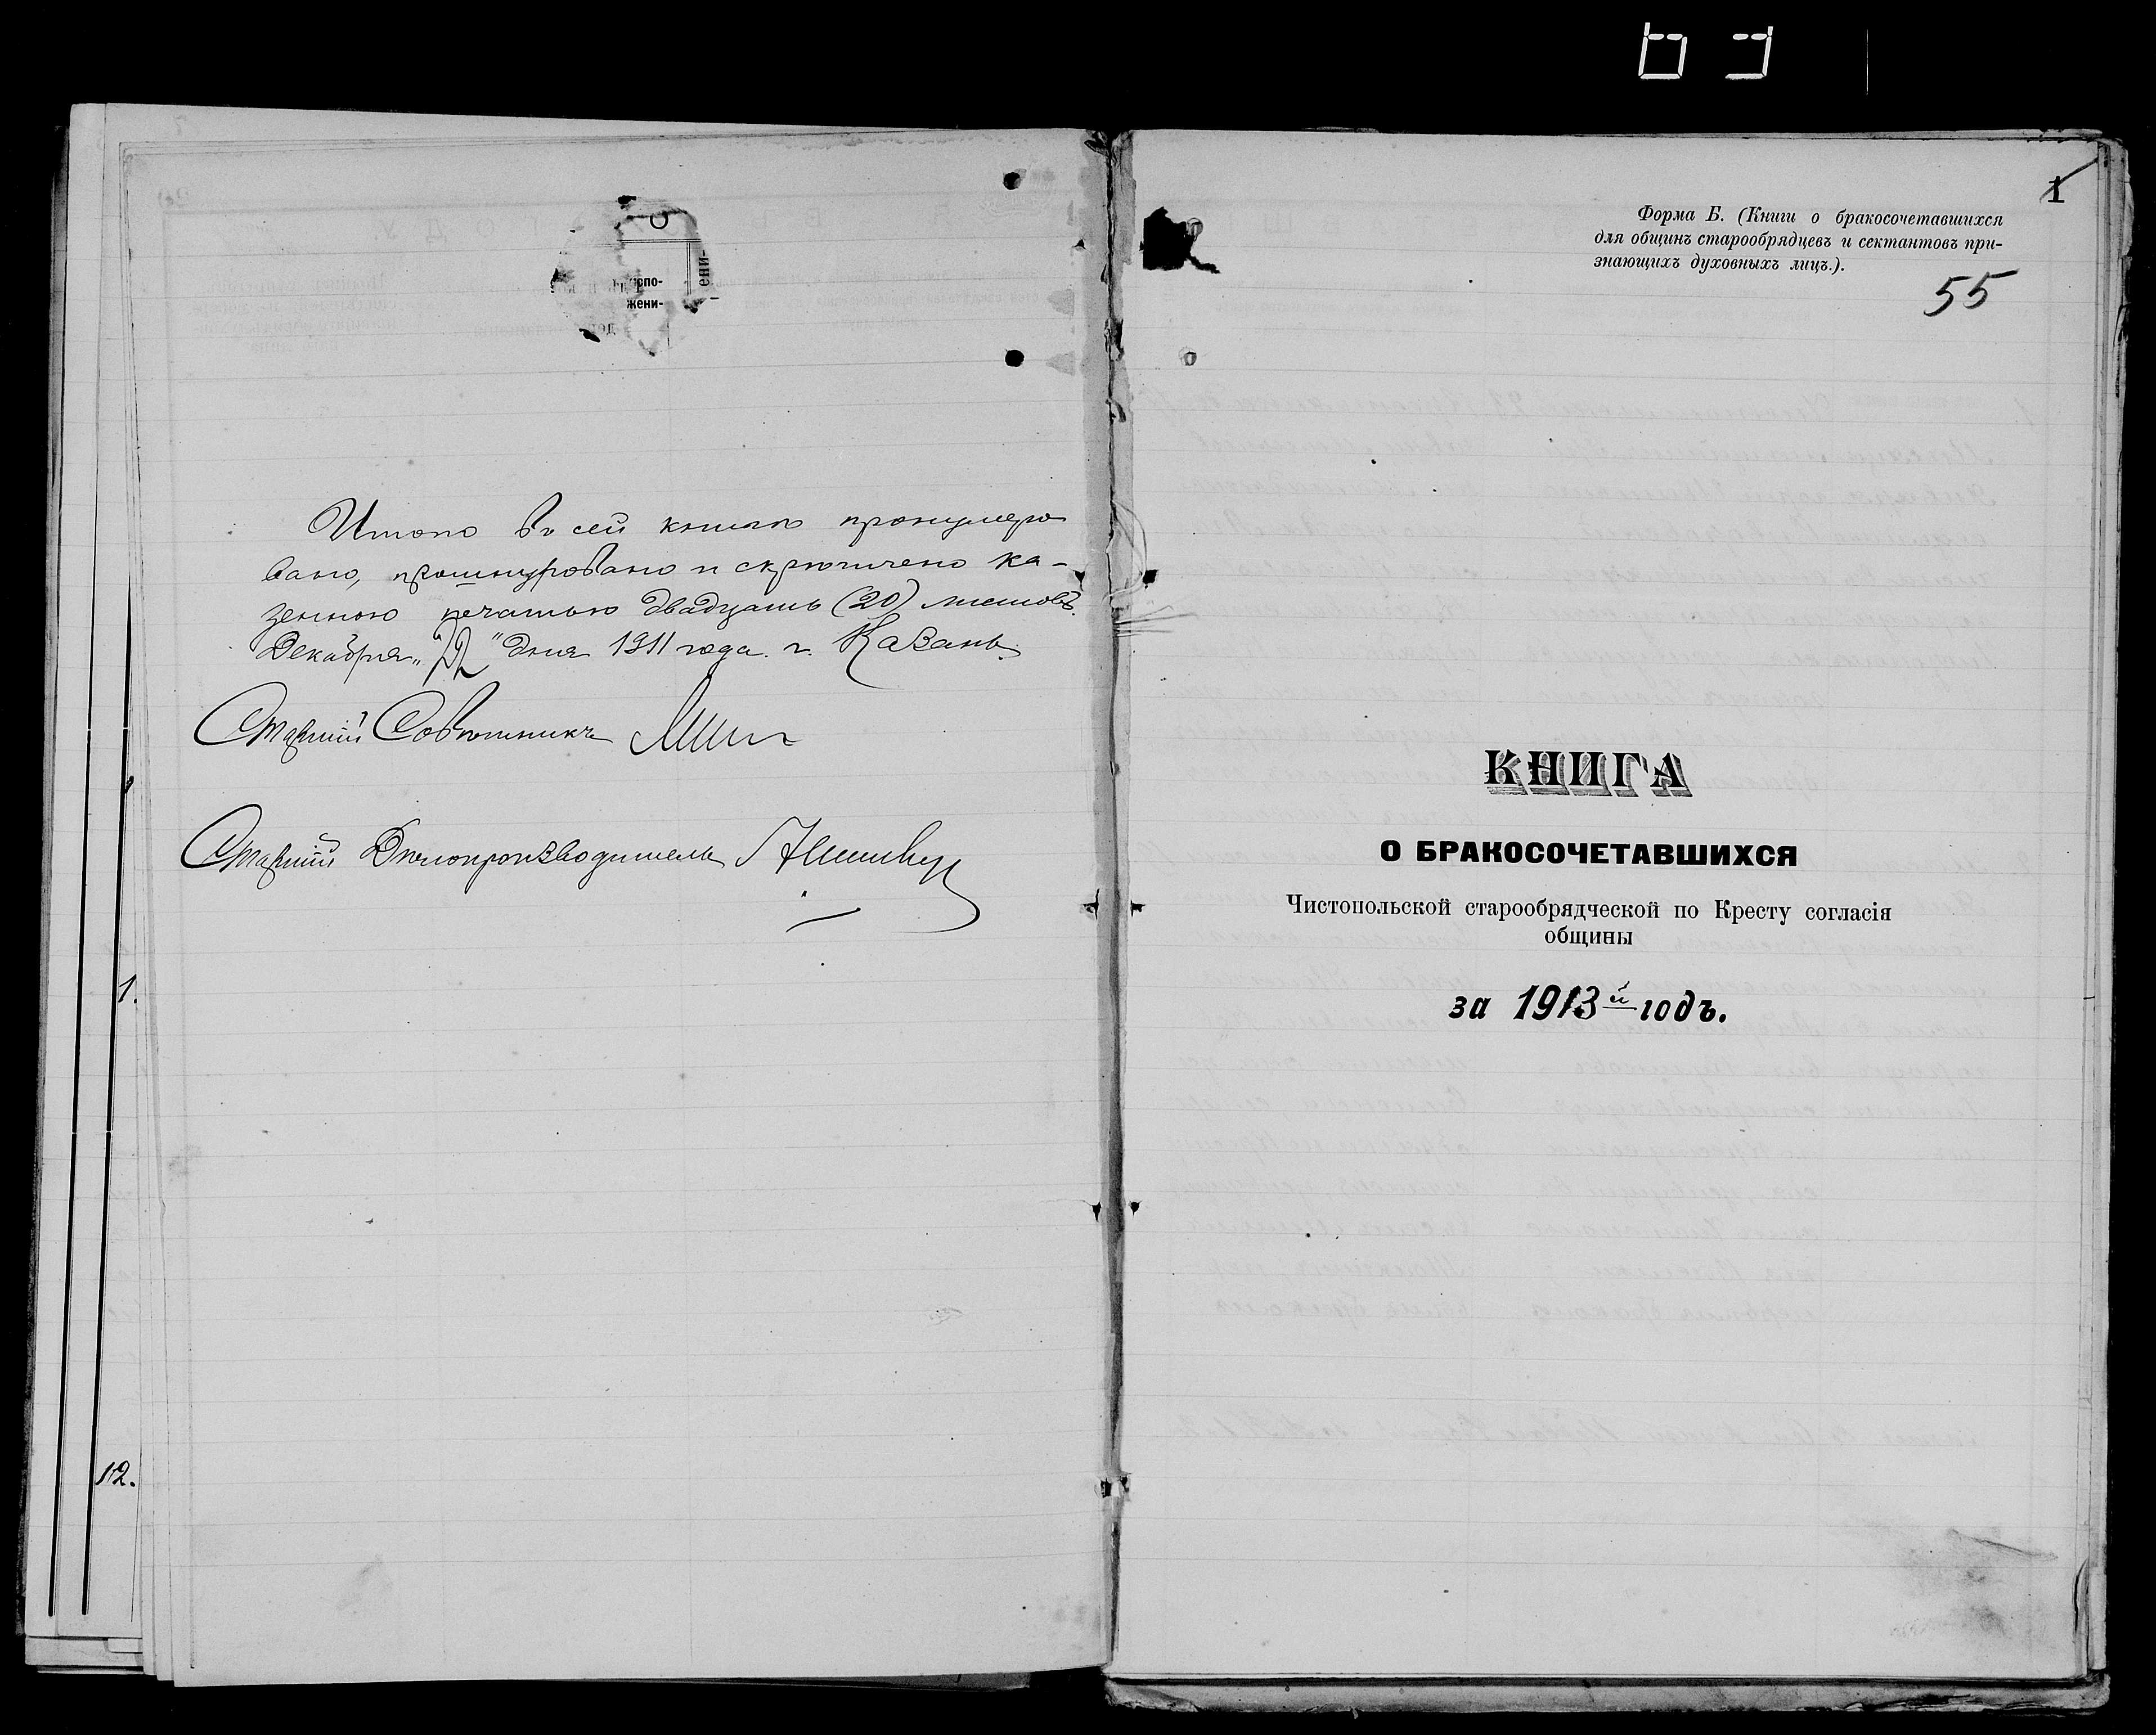 Итого въ сей книгѣ пронумеро
вано, прошнуровано и скрѣплено ка-
зенною печатью двадцать (20) листовъ.
Декабря „ " дня 1911 года. г. Казань.
Старшій Совѣтникъ
Старшій Дѣлопроизводитель
спо-
жени-
ени-
1.
12.
1
Форма Б. (Книги о бракосочетавшихся
для общинъ старообрядцевъ и сектантовъ при-
знающихъ духовныхъ лицъ.).
55
КНИГА
О БРАКОСОЧЕТАВШИХСЯ
Чистопольской старообрядческой по Кресту согласія
общины
за 1913й годъ.